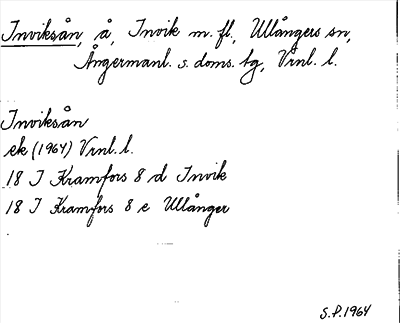 Inviksån, å, Invik m. fl., Ullångers sn,
Ångermanl. s. doms. tg, Vrnl. l.
Inviksån
ek (1964) Vrnl. l.
18 I Kramfors 8 d Invik
18 I Kramfors 8 e Ullånger
S.P. 1964